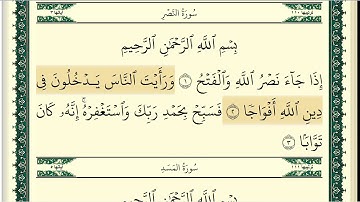 سُورَةُ النَّصْرِ
بِسْمِ ٱللَّهِ ٱلرَّحْمَٰنِ ٱلرَّحِيمِ
إِذَا جَآءَ نَصْرُ ٱللَّهِ وَٱلْفَتْحُ ١ وَرَأَيْتَ ٱلنَّاسَ يَدْخُلُونَ فِى
دِينِ ٱللَّهِ أَفْوَاجًا ٢ فَسَبِّحْ بِحَمْدِ رَبِّكَ وَٱسْتَغْفِرْهُ ۚ إِنَّهُۥ كَانَ
تَوَّابًۢا ٣
سُورَةُ المَسَدِ
بِسْمِ ٱللَّهِ ٱلرَّحْمَٰنِ ٱلرَّحِيمِ